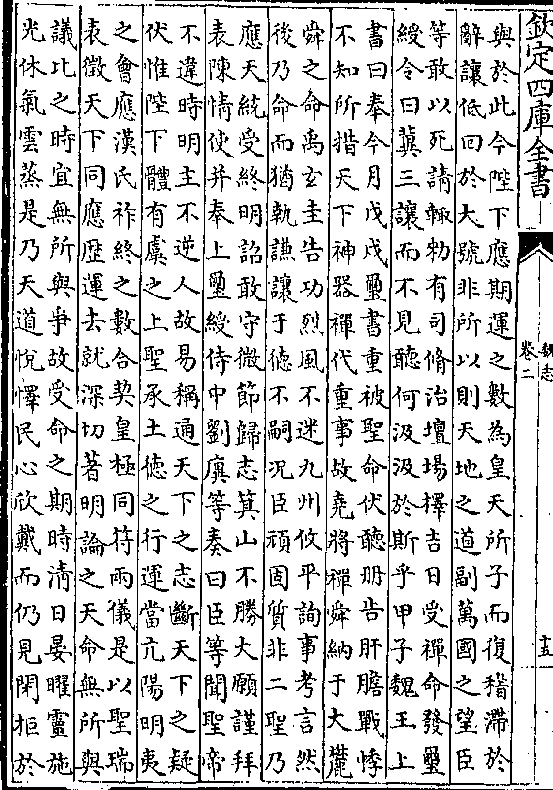 欽定四庫全書
魏志
卷二
十五
與於此今陛下應期運之數為皇天所子而復稽滯於
辭讓低回於大號非所以則天地之道副萬國之望臣
等敢以死請輒勑有司脩治壇場擇吉日受禪命發璽
綬令曰冀三讓而不見聽何汲汲於斯乎甲子魏王上
書曰奉今月戊戌璽書重被聖命伏聽册告肝膽戰悸
不知所措天下神器禪代重事故堯將禪舜納于大麓
舜之命禹玄圭告功烈風不迷九州攸平詢事考言然
後乃命而猶執謙讓于德不嗣况臣頑固質非二聖乃
應天統受終明詔敢守微節歸志箕山不勝大願謹拜
表陳情使并奉上璽綬侍中劉廙等奏曰臣等聞聖帝
不違時明主不逆人故易稱通天下之志斷天下之疑
伏惟陛下體有虞之上聖承土德之行運當亢陽明夷
之會應漢氏祚終之數合契皇極同符兩儀是以聖瑞
表徵天下同應歴運去就深切著明論之天命無所與
議比之時宜無所與爭故受命之期時清日晏曜靈施
光休氣雲蒸是乃天道悅懌民心欣戴而仍見閉拒於